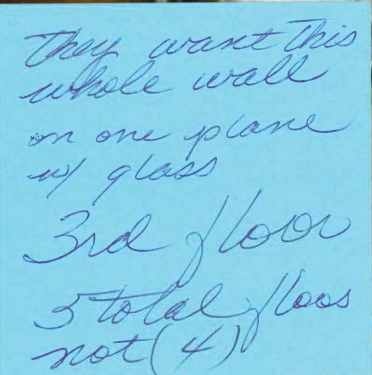 They want This
whole wall
on one plane
w/ glass
3rd floor
5 total floos
not (4)